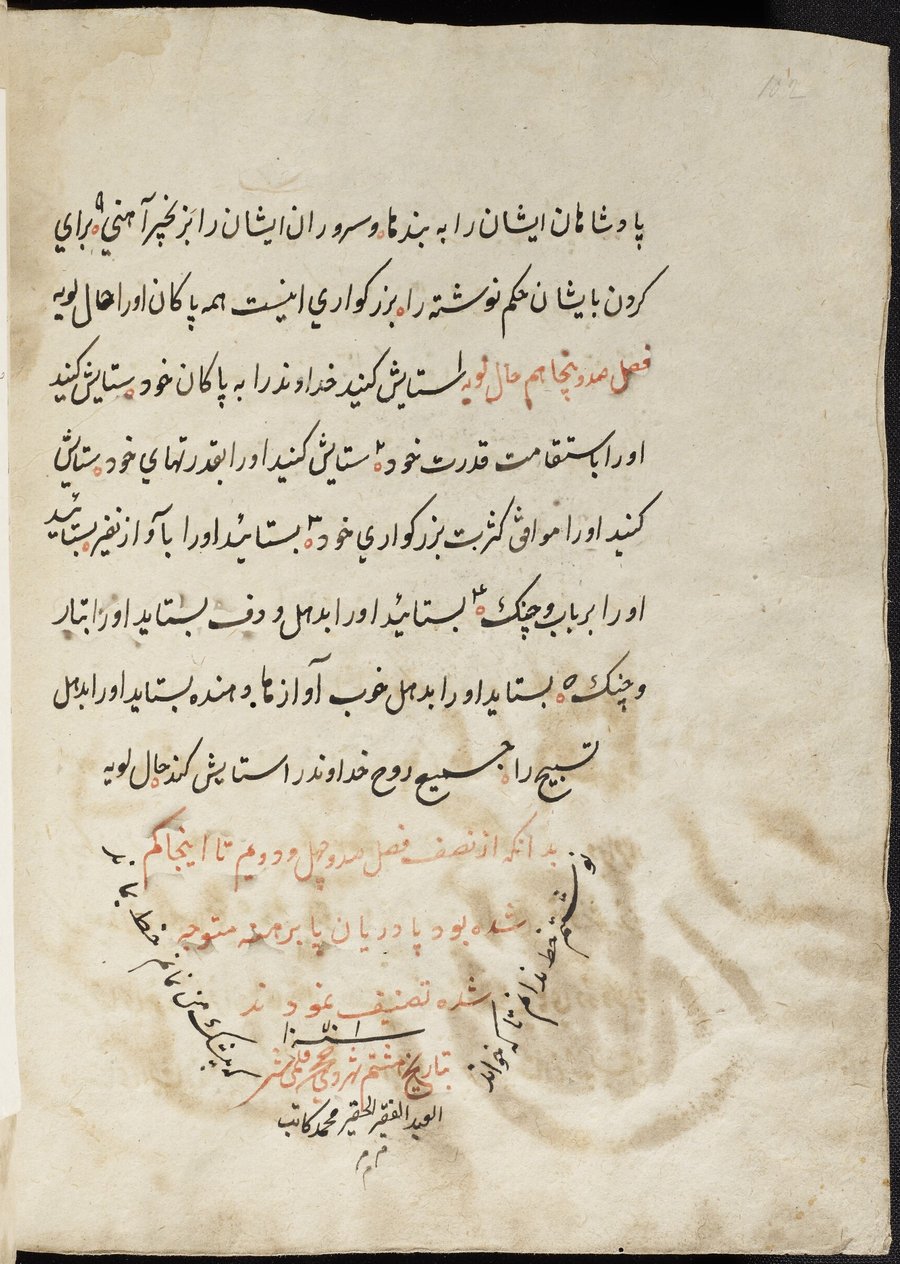 102
پادشاهان ایشان را به بندها ه و سروران ایشان را بزنجیر آهنی ٩ ه برای
کردن بایشان حکم نوشته را ه بزرکواري اینست همه پاکان اورا حال لویه
فصل صد و پنجاهم حال لویه ا ستایش کنید خداوند را به پاکان خود ه ستایش کنید
اورا باستقامت قدرت خود ه ٢ ستایش کنید اورا بقدرتهاي خود ه ستایش
کنید اورا موافق کثرت بزرکواري خود ه ٣ بستائید اورا بآواز نفیر ه بستائید
اورا برباب و چنك ه ۴ بستائید اورا بدهل و دف بستاید اورا بتار
و چنك ه ۵ بستاید اورا بدهل خوب آوازها و هنده بستاید اورا بدهل
تسبیح را ه جمیع روح خداوند را ستایش کند حال لویه
بدانکه از نصف فصل صد و چهل و دویم تا اینجا کم
شده بود پادریان پا برهنه متوجه
شده تصنیف نمودند
نوشتم خط ندانم تا که خواند
که بیشك من نمانم خط بماند
سنه
بتاریخ هشتم شهر ذی حجه قلمی شد
العبد الفقیر الحقیر محمد کاتب
م م م